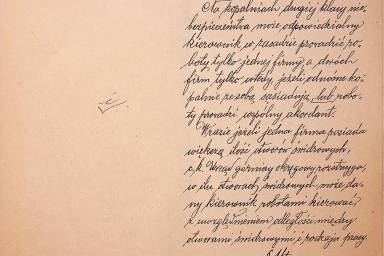 Na kopalniach drugiej klasy nie-
bezpieczeństwa może odpowiedzialny
kierownik w zasadzie prowadzić ro-
boty tylko jednej firmy, a dwóch
firm tylko wtedy, jeżeli odnośne ko-
palnie ze sobą sąsiadują, lub robo-
ty prowadzi wspólny akordant.
W razie jeżeli jedna firma posiada
większą ilość otworów świdrowych,
c.k. Urząd górniczy okręgowy rozstrzyga,
w ilu otworach świdrowych może da-
ny kierownik robotami kierować,
z uwzględnieniem odległości między
otworami świdrowymi i rodzaju pracy.